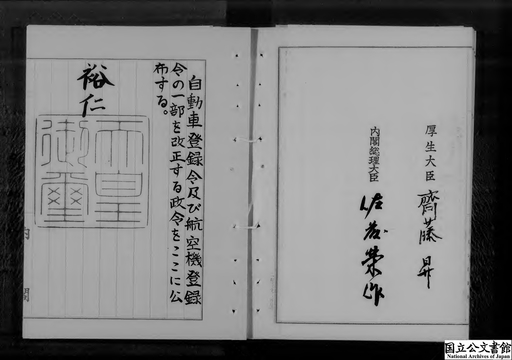 厚生大臣 齊藤昇
内閣総理大臣 佐藤榮作
自動車登録令及び航空機登録
令の一部を改正する政令をここに公
布する。
裕仁
天皇
御璽
内
閣
国立公文書館
National Archives of Japan